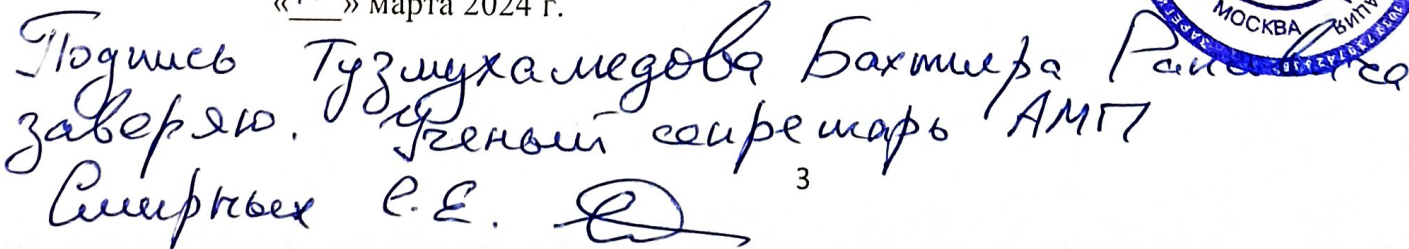 «___» марта 2024 г.
МОСКВА
Подпись Тузмухамедова Бахтияра Раисовича
заверяю. Ученый секретарь АМП
3
Смирных С.Е.